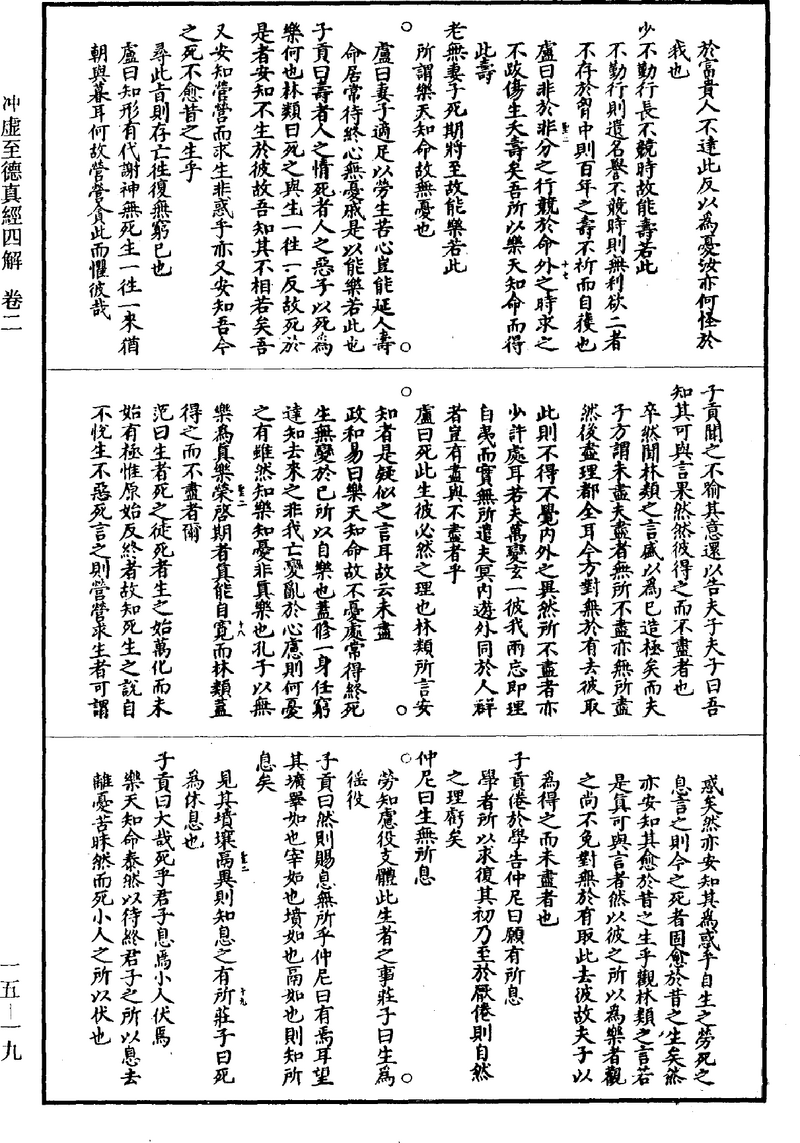 於富貴人不達此反以為憂汝亦何怪於
我也
少不勤行長不競時故能壽若此
不勤行則遺名譽不競時則無利欲二者
不存於胷中則百年之壽不祈而自獲也
盧曰非於非分之行競於命外之時求之
不跂傷生夭壽矣吾所以樂天知命而得
此壽
老無妻子死期將至故能樂若此
所謂樂天知命故無憂也
盧曰妻子適足以勞生苦心豈能延人壽
命居常待終心無憂戚是以能樂若此也
子貢曰壽者人之情死者人之惡子以死為
樂何也林類曰死之與生一往一反故死於
是者安知不生於彼故吾知其不相若矣吾
又安知營營而求生非惑乎亦又安知吾今
之死不愈昔之生乎
尋此旨則存亡往復無窮已也
盧曰知形有代謝神無死生一往一來猶
朝與暮耳何故營營貪此而懼彼哉
子貢聞之不喻其意還以告夫子夫子曰吾
知其可與言果然然彼得之而不盡者也
卒然聞林類之言盛以為已造極矣而夫
子方謂未盡夫盡者無所不盡亦無所盡
然後盡理都全耳今方對無於有去彼取
此則不得不覺內外之異然所不盡者亦
少許處耳若夫萬變玄一彼我兩忘即理
自夷而實無所遣夫冥內遊外同於人群
者豈有盡與不盡者乎
盧曰死此生彼必然之理也林類所言安
知者是疑似之言耳故云未盡
政和曰樂天知命故不憂處常得終死
生無變於已所以自樂也蓋修一身任窮
達知去來之非我亡變亂於心慮則何憂
之有雖然知樂知憂非真樂也孔子以無
樂為真樂榮啓期者真能自寬而林類蓋
得之而不盡者爾
范曰生者死之徒死者生之始萬化而未
始有極惟原始反終者故知死生之說自
不恱生不惡死言之則營營求生者可謂
惑矣然亦安知其為惑乎自生之勞死之
息言之則今之死者固愈於昔之生矣然
亦安知其愈於昔之生乎觀林類之言若
是真可與言者然以彼之所以為樂者觀
之尚不免對無於有取此去彼故夫子以
為得之而未盡者也
子貢倦於學告仲尼曰願有所息
學者所以求復其初乃至於厭倦則自然
之理虧矣
仲尼曰生無所息
勞知慮役支體此生者之事莊子曰生為
徭役
子貢曰然則賜息無所乎仲尼曰有焉耳望
其壙睪如也宰如也墳如也鬲如也則知所
息矣
見其墳壤鬲異則知息之有所莊子曰死
為休息也
子貢曰大哉死乎君子息焉小人伏焉
樂天知命泰然以待終君子之所以息去
離憂苦昧然而死小人之所以伏也
冲虛至德真經四解 卷二
一五—一九